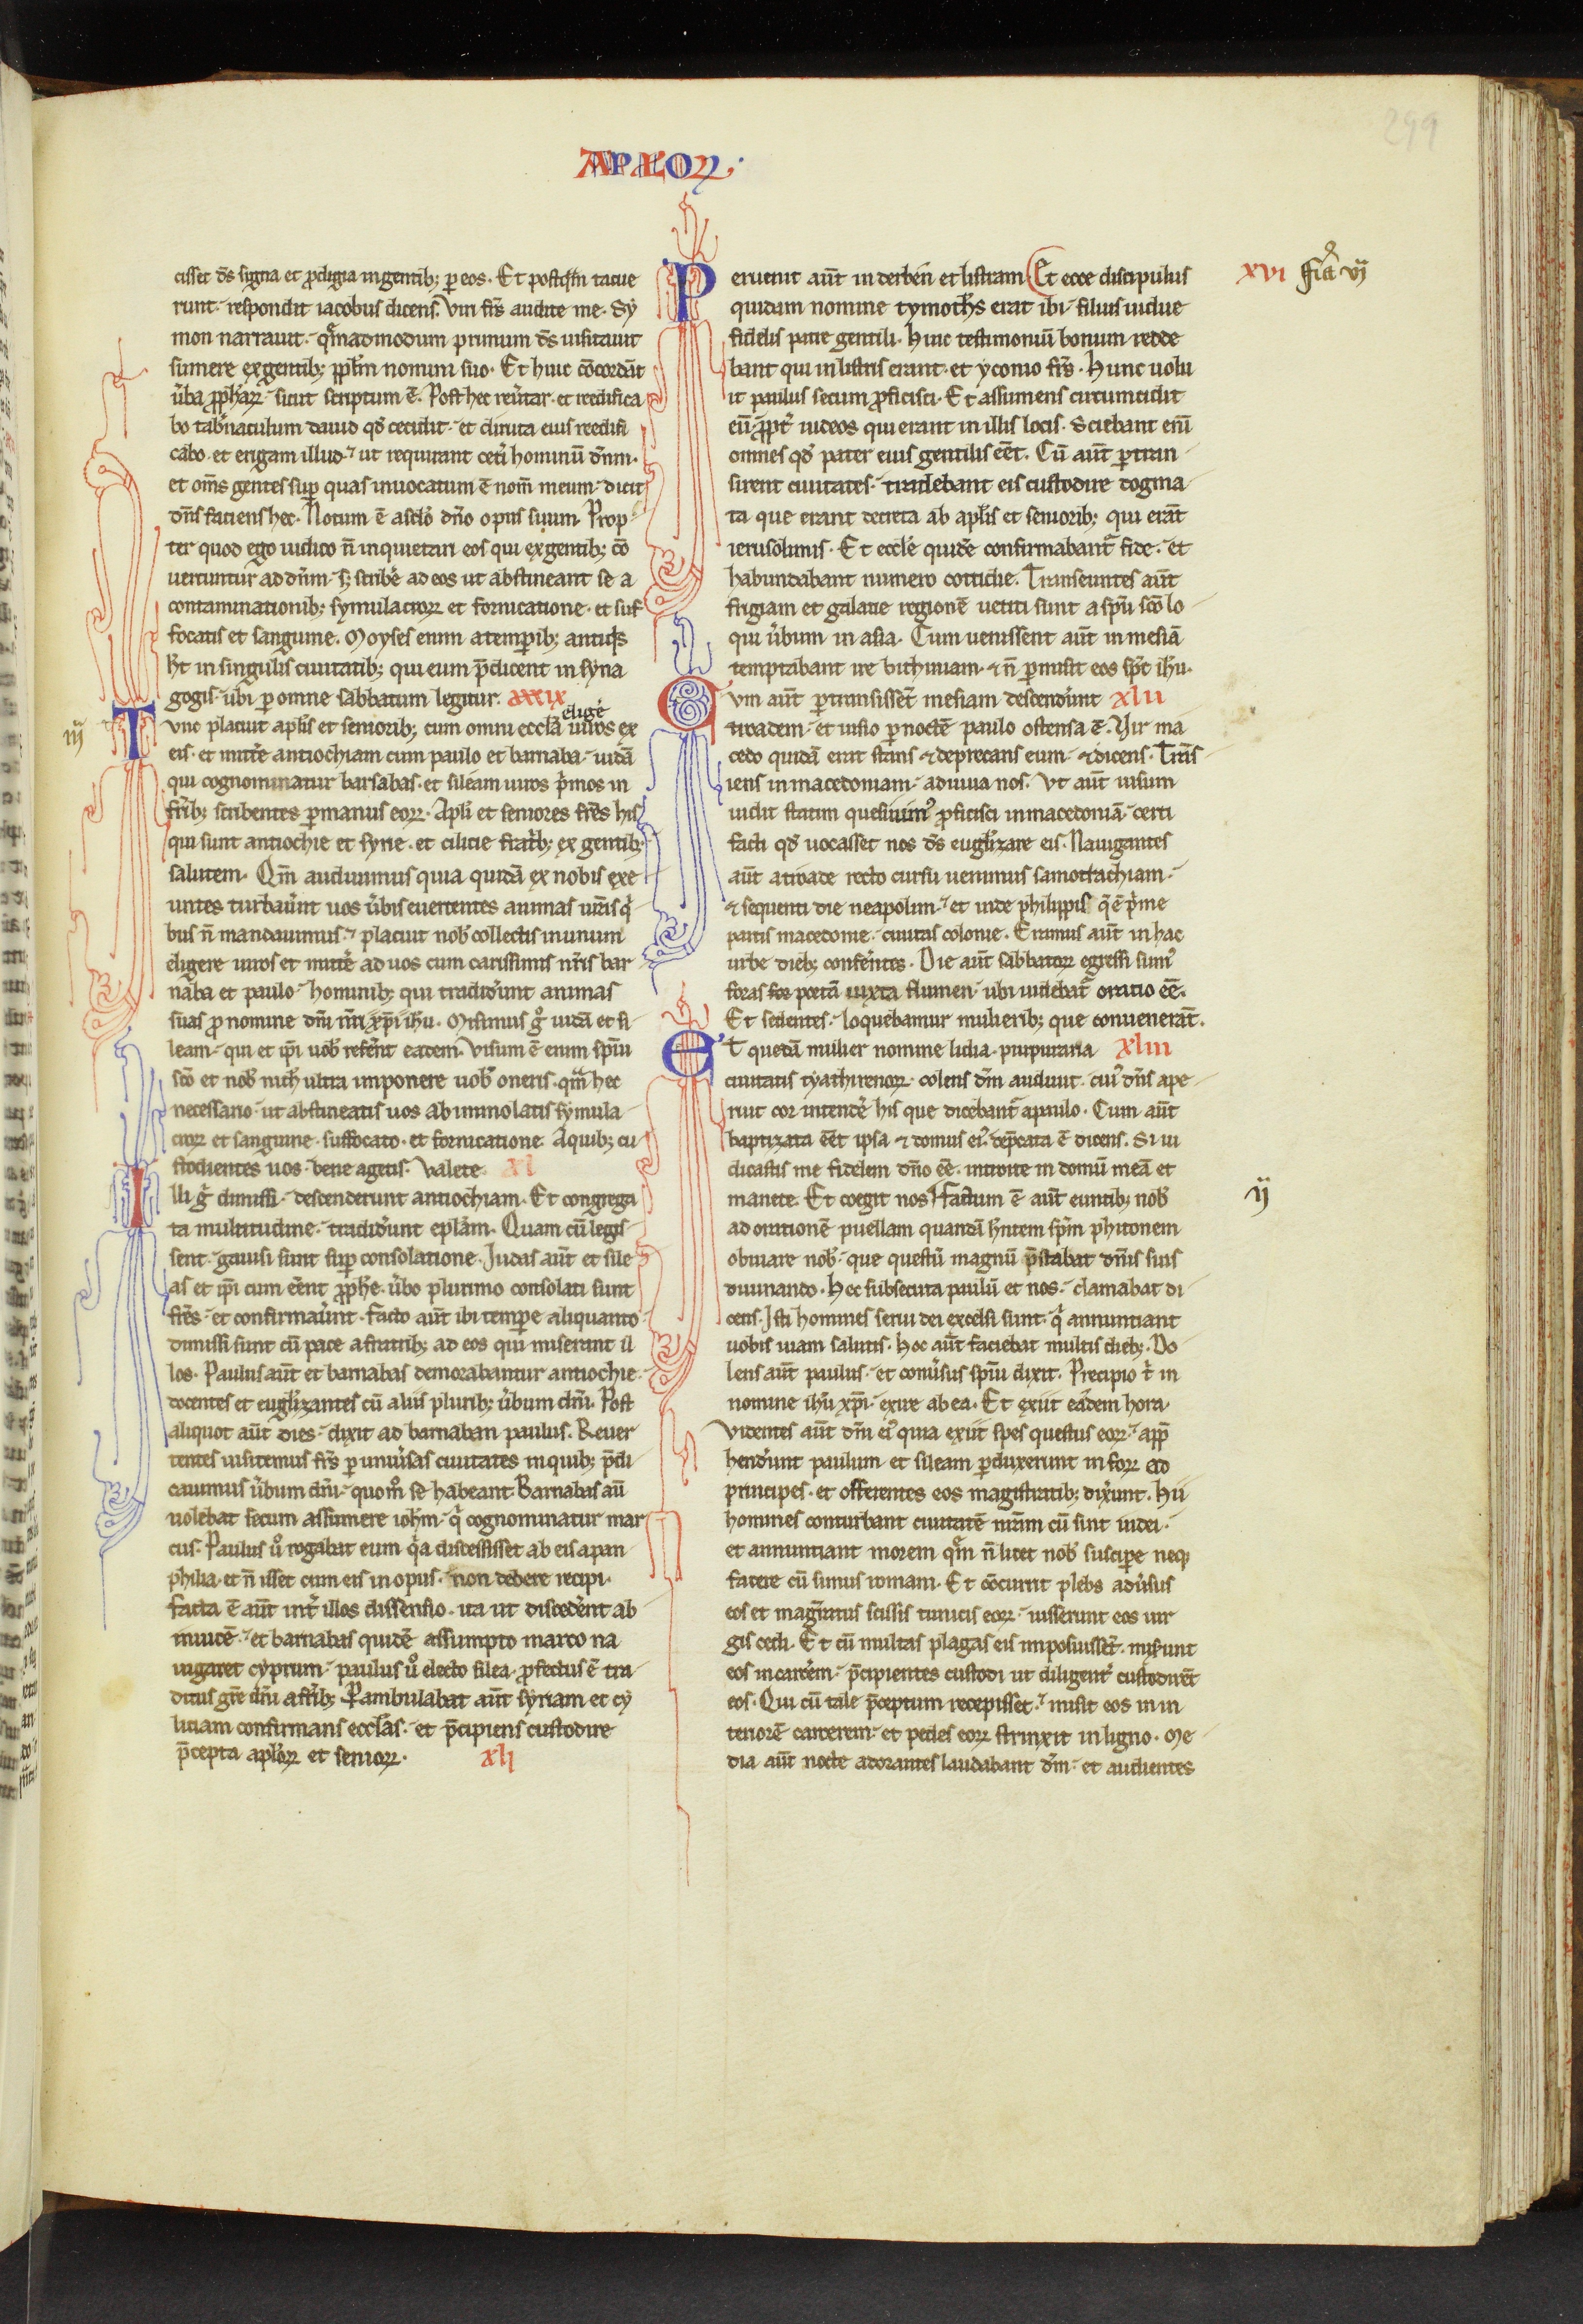 299
APLOꝜ
cisset dꝰs signa et ꝓdigia in gentibꝫ ꝑ eos. Et postqͣm tacue
runt. respondit iacobus dicens. Viri fr̄s audite me. Sy
mon narrauit. qͣmadmodum primum ds̄ uisitauit
sumere ex gentibꝫ ppl̄m nomini suo. Et huic cōcordāt
ūba ꝓphaꝝ. sicut scriptum ē. Post hec reūtar. et reedifica
bo tab̄naculum dauid qd̄ cecidit. et diruta eius reedifi
cabo. et erigam illud. ut requirant cet̄i hominū dn̄m.
et om̄s gentes suꝑ quas inuocatum ē nom̄ meum. dicit
dn̄s faciens hec. Notum ē a sc̄lo dn̄o opus suum. Prop
ter quod ego iudico n̄ inquietari eos qui ex gentibꝫ cō
uertuntur ad dn̄m. sꝫ scribē ad eos ut abstineant se a
contaminationibꝫ symulacroꝝ et fornicatione. et suf
focatis et sanguine. Moyses enim a temꝑibꝫ antiqͥs
ht̄ in singulis ciuitatibꝫ qui eum p̄dicent in syna
gogis. ubi ꝑ omne sabbatum legitur. xxxix
eligē
iij
Tunc placuit apl̄is et senioribꝫ cum omni eccl̄a uiros ex
eis. et mittē antiochiam cum paulo et barnaba. iudā
qui cognominatur barsabas. et sileam uiros pͥmos in
fr̄ibꝫ scribentes ꝑ manus eoꝝ. Apl̄i et seniores fr̄es his
qui sunt antiochie et syrie. et cilicie fratr̄bꝫ ex gentibꝫ
salutem. Qm̄ audiuimus quia quidā ex nobis exe
untes turbaūnt uos ūbis euertentes animas ur̄as qͥ
bus n̄ mandauimus. placuit nob̄ collectis in unum
eligere uiros et mittē ad uos cum carissimis nr̄is bar
naba et paulo. hominibꝫ qui tradidūnt animas
suas ꝓ nomine dn̄i nr̄i xp̄i ihu. Misimus gͦ iudā et si
leam. qui et ip̄i uob̄ refērt eadem. Visum ē enim spū
scō et nob̄ nich̄ ultra imponere uob̄ oneris. qͣm hec
necessario. ut abstineatis uos ab immolatis symula
croꝝ et sanguine. suffocato. et fornicatione. A quibꝫ cu
stodientes uos. bene agetis. Valete. xl
Illi gͦ dimissi. descenderunt antiochiam. Et congrega
ta multitudine. tradidūnt epl̄am. Quam cū legis
sent. gauisi sunt suꝑ consolatione. Judas aut̄ et sile
as et ip̄i cum eēnt ꝓphē. ūbo plurimo consolati sunt
fr̄es. et confirmaūnt. facto aut̄ ibi tempꝛe aliquanto
dimissi sunt cū pace a fratribꝫ ad eos qui miserant il
los. Paulus aut̄ et barnabas demorabantur antiochie.
docentes et euglizantes cū aliis pluribꝫ ūbum dn̄i. Post
aliquot aut̄ dies. dixit ad barnaban paulus. Reuer
tentes uisitemus fr̄s ꝑ uniūsas ciuitates in quibꝫ p̄di
cauimus ūbum dn̄i. quom̄ se habeant. Barnabas aū
uolebat secum assumere ioh̄m. qͥ cognominatur mar
cus. Paulus uͦ rogabat eum qͣ discessisset ab eis a pan
philia. et n̄ isset cum eis in opus. non debere recipi.
facta ē aut̄ int̄ illos dissensio. ita ut discedēnt ab
inuicē. et barnabas quidē assumpto marco na
uigaret cyprum. paulus uͦ electo silea. ꝓfectus ē tra
ditus gr̄e dn̄i a fr̄ibꝫ. Pambulabat aut̄ syriam et cy
liciam confirmans eccl̄as. et p̄cipiens custodire
p̄cepta apl̄oꝝ et senioꝝ. xlj
Peruenit aut̄ in derben et listram. Et ecce discipulus
xvi
quidam nomine tymoth̄s erat ibi. filius uidue
fidelis patre gentili. Huic testimoniū bonum redde
bant qui in listris erant. et yconio fr̄s. Hunc uolu
it paulus secum ꝓficisci. Et assumens circumcidit
eū ꝓpt̄ iudeos qui erant in illis locis. Sciebant enī
omnes qd̄ pater eius gentilis eēt. Cū aut̄ ꝑtran
sirent ciuitates. tradebant eis custodire dogma
ta que erant decreta ab apl̄is et senioribꝫ qui erāt
ierusolimis. Et eccl̄e quidē confirmabant̄ fide. et
habundabant numero cottidie. Transeuntes aut̄
frigiam et galatie regionē uetiti sunt a spū scō lo
qui ūbum in asia. Cum uenissent aut̄ in mesiā
temptabant ire bithiniam. ⁊ n̄ ꝑmisit eos spc̄ ihū.
Cum aut̄ ꝑtransissēt mesiam descendūnt xlii
troadem. et uisio ꝑ noctē paulo ostensa ē. Vir ma
cedo quidā erat stans ⁊ deprecans eum. ⁊ dicens. Trās
iens in macedoniam. adiuua nos. Vt aut̄ uisum
uidit statim quesiuimꝰ ꝓficisci in macedoniā. certi
facti qd̄ uocasset nos ds̄ euglizare eis. Nauigantes
aut̄ a troade recto cursu uenimus samotrachiam.
⁊ sequenti die neapolim. et inde philippis q̄ ē pͥme
partis macedonie. ciuitas colonie. Eramus aut̄ in hac
urbe diebꝫ conferētes. Die aut̄ sabbatoꝝ egressi sumꝰ
foras for portā iuxta flumen. ubi uidebat̄ oratio eē.
Et sedentes. loquebamur mulieribꝫ que conuenerāt.
Et quedā mulier nomine lidia. purpuraria xliii
ciuitatis tyathirenoꝝ. colens dm̄ audiuit. cuiꝰ dn̄s ape
ruit cor intendē his que dicebant̄ a paulo. Cum aut̄
baptizata eēt ipsa ⁊ domus eiꝰ. dep̄cata ē dicens. Si iu
dicastis me fidelem dn̄o eē. introite in domū meā et
manete. Et coegit nos. Factum ē aut̄ euntibꝫ nob̄
ij
ad orationē puellam quandā hn̄tem spm̄ phitonem
obuiare nob̄. que questū magnū p̄stabat dn̄is suis
diuinando. Hec subsecuta paulū et nos. clamabat di
cens. Isti homines serui dei excelsi sunt. qͥ annuntiant
uobis uiam salutis. Hoc aut̄ faciebat multis diebꝫ. Do
lens aut̄ paulus. et conūsus spūi dixit. Precipio t̄ in
nomine ihū xp̄i. exire ab ea. Et exiit eadem hora.
Videntes aut̄ dn̄i eiꝰ quia exiit spes questus eoꝝ. app̄
hendūnt paulum et sileam ꝑduxerunt in foꝝ ad
principes. et offerentes eos magistratibꝫ dixūnt. Hii
homines conturbant ciuitatē nr̄am cū sint iudei.
et annuntiant morem qͣm n̄ licet nob̄ suscipe neqꝫ
facere cū simus romani. Et cōcurrit plebs adūsus
eos et magr̄atus scissis tunicis eoꝝ. iusserunt eos uir
gis cedi. Et cū multas plagas eis imposuissēt. misūnt
eos in carcēem. p̄cipientes custodi ut diligent̄ custodirēt
eos. Qui cū tale p̄ceptum recepisset. misit eos in in
teriorē carcerem. et pedes eoꝝ strinxit in ligno. Me
dia aut̄ nocte adorantes laudabant dm̄. et audientes